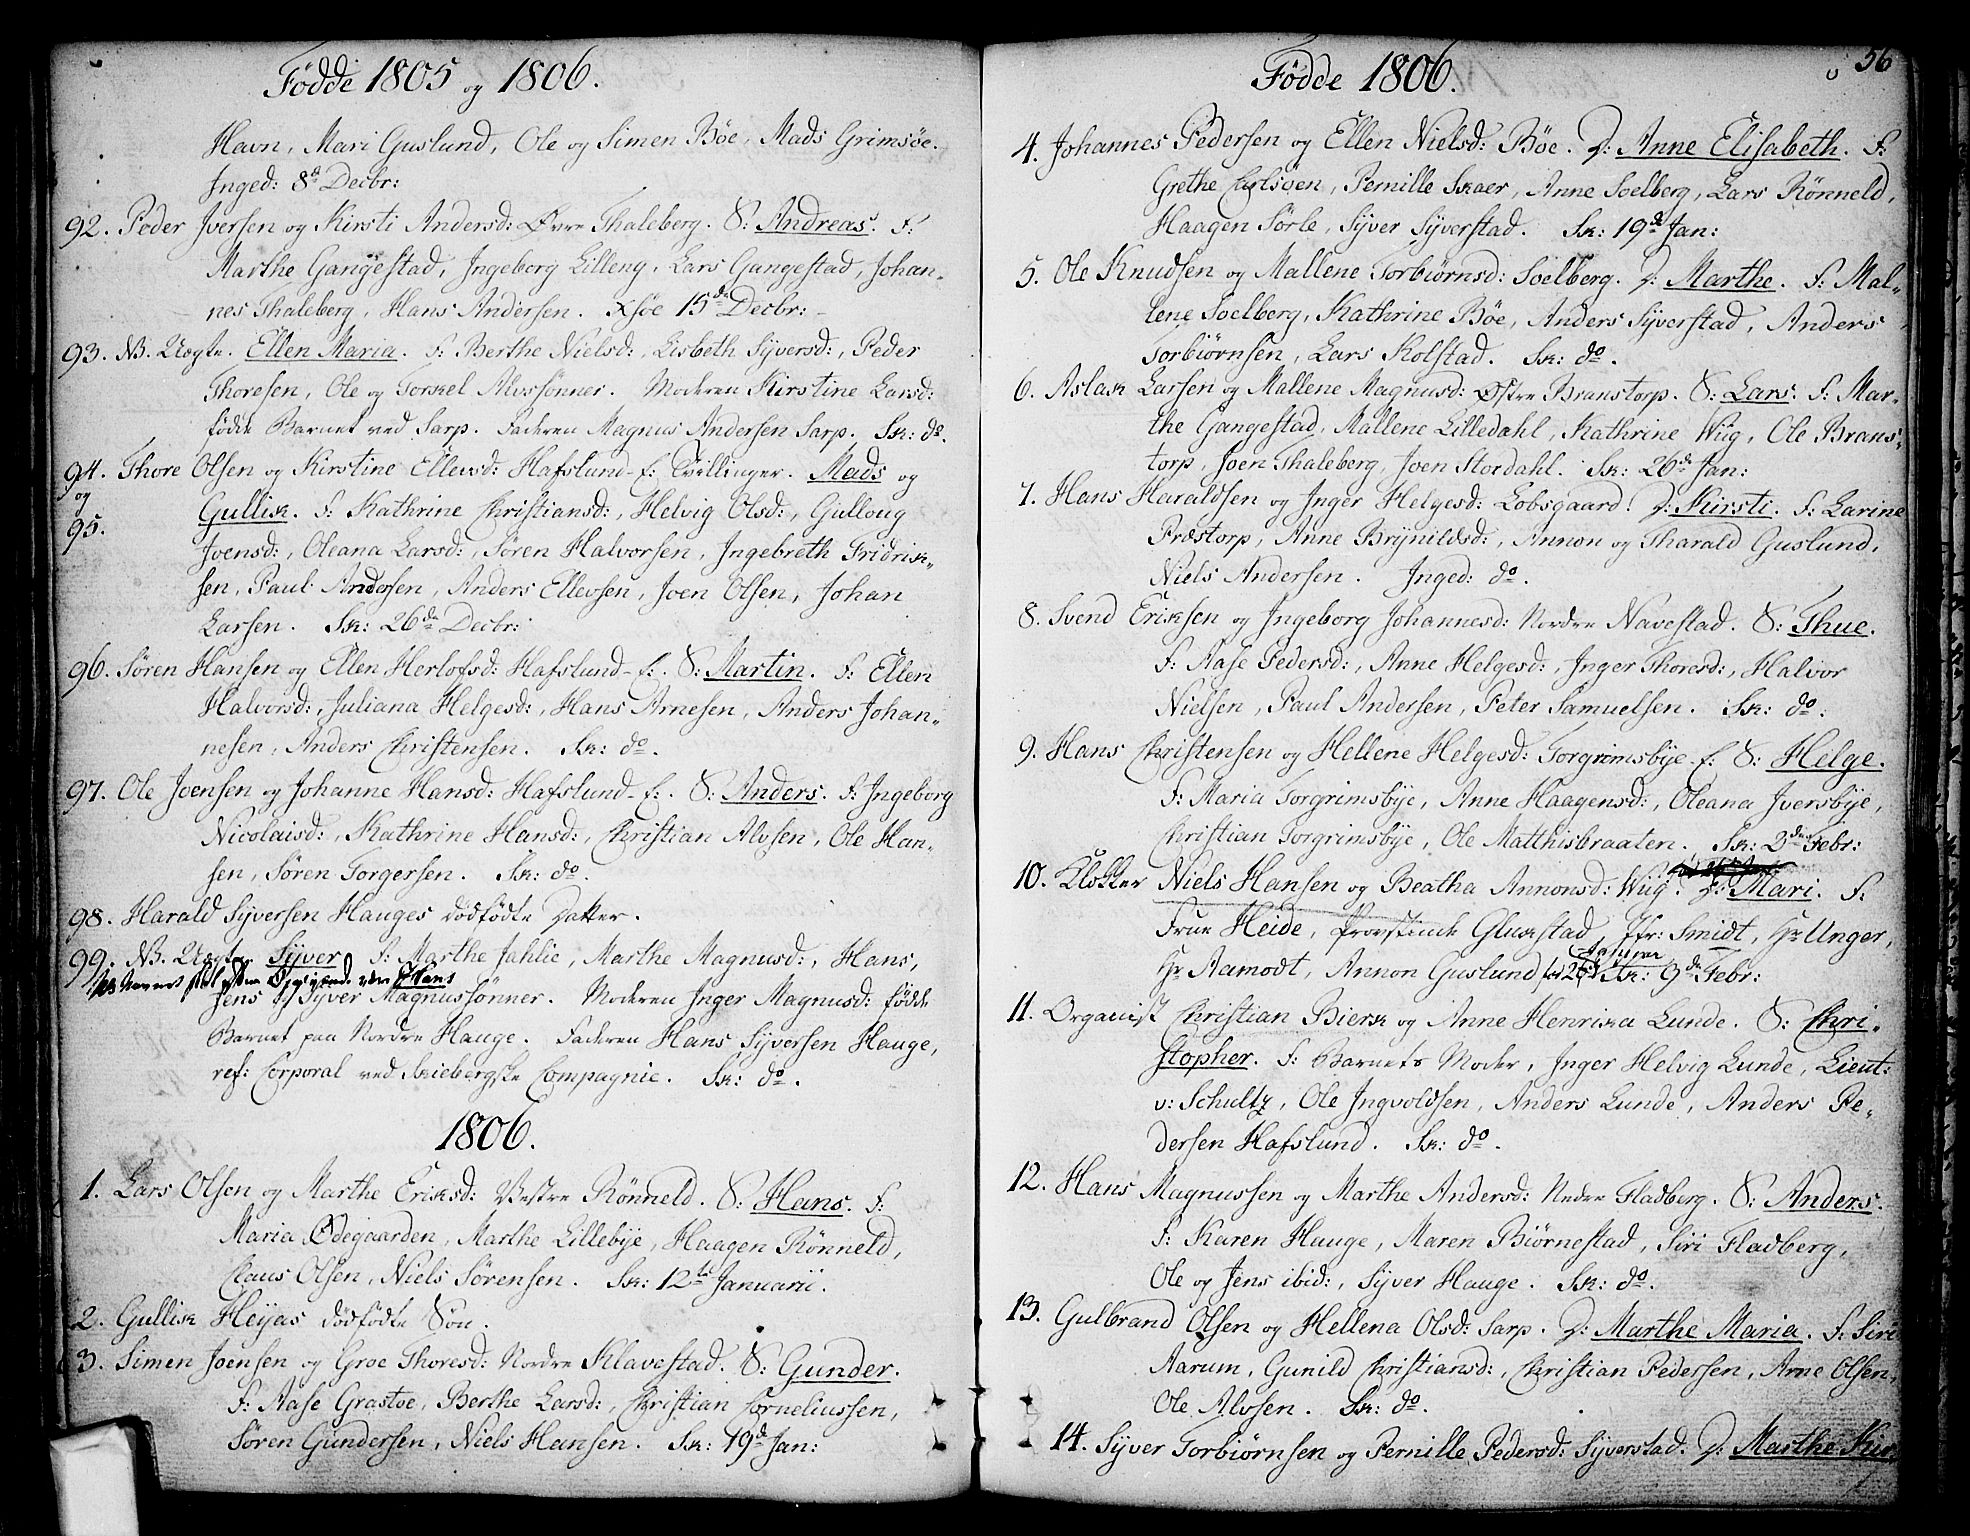 Födde 1805 og 1806.
Havn, Mari Guslund, Ole og Simen Böe, Mads Grimsöe.
Inged: 8d Decbr:
92. Peder Jversen og Kirsti Andersd: Övre Thaleberg. S: Andreas. F:
Marthe Gangestad, Ingeborg Lilleng, Lars Gangestad, Johan-
nes Thaleberg, Hans Andersen. 15de Decbr:
93. NB. Uægte. Ellen Maria. F: Berthe Nielsd:, Lisbeth Syversd:, Peder
Thoresen, Ole og Torkel Alvssönner. Moderen Kirstine Larsd:
födte Barnet ved Sarp. Faderen Magnus Andersen Sarp. Sk: do.
94. Thore Olsen og Kirstine Ellevsd: Hafslund-E: Tvillinger. Mads og
og
95. Gullik. F: Kathrine Christiansd:, Helvig Olsd:, Gulloug
Joensd:, Oleana Larsd:, Sören Halvorsen, Ingebreth Fridrik-
sen, Paul Andersen, Anders Ellevsen, Joen Olsen, Johan
Larsen. Sk: 26de Decbr:
96. Sören Hansen og Ellen Herlofsd: Hafslund-E:. S: Martin. F: Ellen
Halvorsd:, Juliana Helgesd:, Hans Arnesen, Anders Johan-
nesen, Anders Christensen. Sk: do.
97. Ole Joensen og Johanne Hansd: Hafslund-E:. S: Anders. F: Ingeborg
Nicolaisd:, Kathrine Hansd:, Christian Alvsen, Ole Han-
sen, Sören Torgersen. Sk: do.
98. Harald Syversen Hauges dödfödte Datter.
99. NB. Uægte. Syver F: Marthe Jahlie, Marthe Magnusd:, Hans,
NB Navnet skal være Hans
Jens og Syver Magnussönner. Moderen Inger Magnusd: födte
Barnet paa Nordre Hauge. Faderen Hans Syversen Hauge,
ref: Corporal ved Skiebergske Compagnie. Sk: do.
1806.
1. Lars Olsen og Marthe Eriksd: Vestre Rönneld. S: Hans. F:
Maria Ødegaarden, Marthe Lillebye, Haagen Rönneld,
Claus Olsen, Niels Sörensen. Sk: 12te Januarii.
2. Gullik Heyas dödfödte Sön.
3. Simen Joensen og Groe Thoresd: Nordre Klavestad. S: Gunder.
F: Aase Grastve, Berthe Larsd:, Christian Corneliussen,
Sören Gundersen, Niels Hansen. Sk: 19d Jan:
Födde 1806.
56
4. Johannes Pedersen og Ellen Nielsd: Böe. D: Anne Elisabeth. F:
Grethe Carlsöen, Pernille Skaer, Anne Soelberg, Lars Rönneld,
Haagen Sörle, Syver Syverstad. Sk: 19de Jan:
5. Ole Knudsen og Mallene Torbiörnsd: Soelberg. D: Marthe. F: Mal-
lene Soelberg, Kathrine Böe, Anders Syverstad, Anders
Torbiörnsen, Lars Kolstad. Sk: do.
6. Aslak Larsen og Mallene Magnusd: Østre Branstorp. S: Lars. F: Mar-
the Gangestad, Mallene Lilledahl, Kathrine Wiig, Ole Brans-
torp, Joen Thaleberg, Joen Stordahl. Sk: 26de Jan:
7. Hans Haraldsen og Inger Helgesd: Lobsgaard. D: Kirsti. F: Larine
Præstorp, Anne Brynildsd:, Annon og Tharald Guslund,
Niels Andersen. Inged: do.
8. Svend Eriksen og Ingeborg Johannesd: Nordre Navestad. S: Thue.
F: Aase Pedersd:, Anne Helgesd:, Inger Thoresd:, Halvor
Nielsen, Paul Andersen, Peter Samuelsen. Sk: do.
9. Hans Christensen og Hellene Helgesd: Torgrimsbye-E: S: Helge.
F: Maria Torgrimsbye, Anne Haagensd:, Oleana Jversbye,
Christian Torgrimsbye, Ole Matthisbraaten. Sk: 2den Febr:
10. Klokker Niels Hansen og Beatha Annonsd: Wiig. D: Mari. F:
Frue Heide, Provstinde Glukstad, Jfr: Smidt, Hr Unger,
Hr Aamodt, Annon Guslund Sk: 9de Febr:
11. Organist Christian Bierk og Anne Henrika Lunde. S: Chri-
stopher. F: Barnets Moder, Inger Helvig Lunde, Lieut:
v: Schultz, Ole Ingvoldsen, Anders Lunde, Anders Pe-
dersen Hafslund. Sk: do.
12. Hans Magnussen og Marthe Andersd: Nedre Fladberg. S: Anders.
F: Karen Hauge, Maren Biörnestad, Siri Fladberg,
Ole og Jens ibid:, Syver Hauge. Sk: do.
13. Gulbrand Olsen og Hellena Olsd: Sarp. D: Marthe Maria. F: Siri
Aarum, Gunild Christiansd:, Christian Pedersen, Arne Olsen,
Ole Alvsen. Sk: do.
14. Syver Torbiörnsen og Pernille Pedersd: Syverstad. D: Marthe Kir-